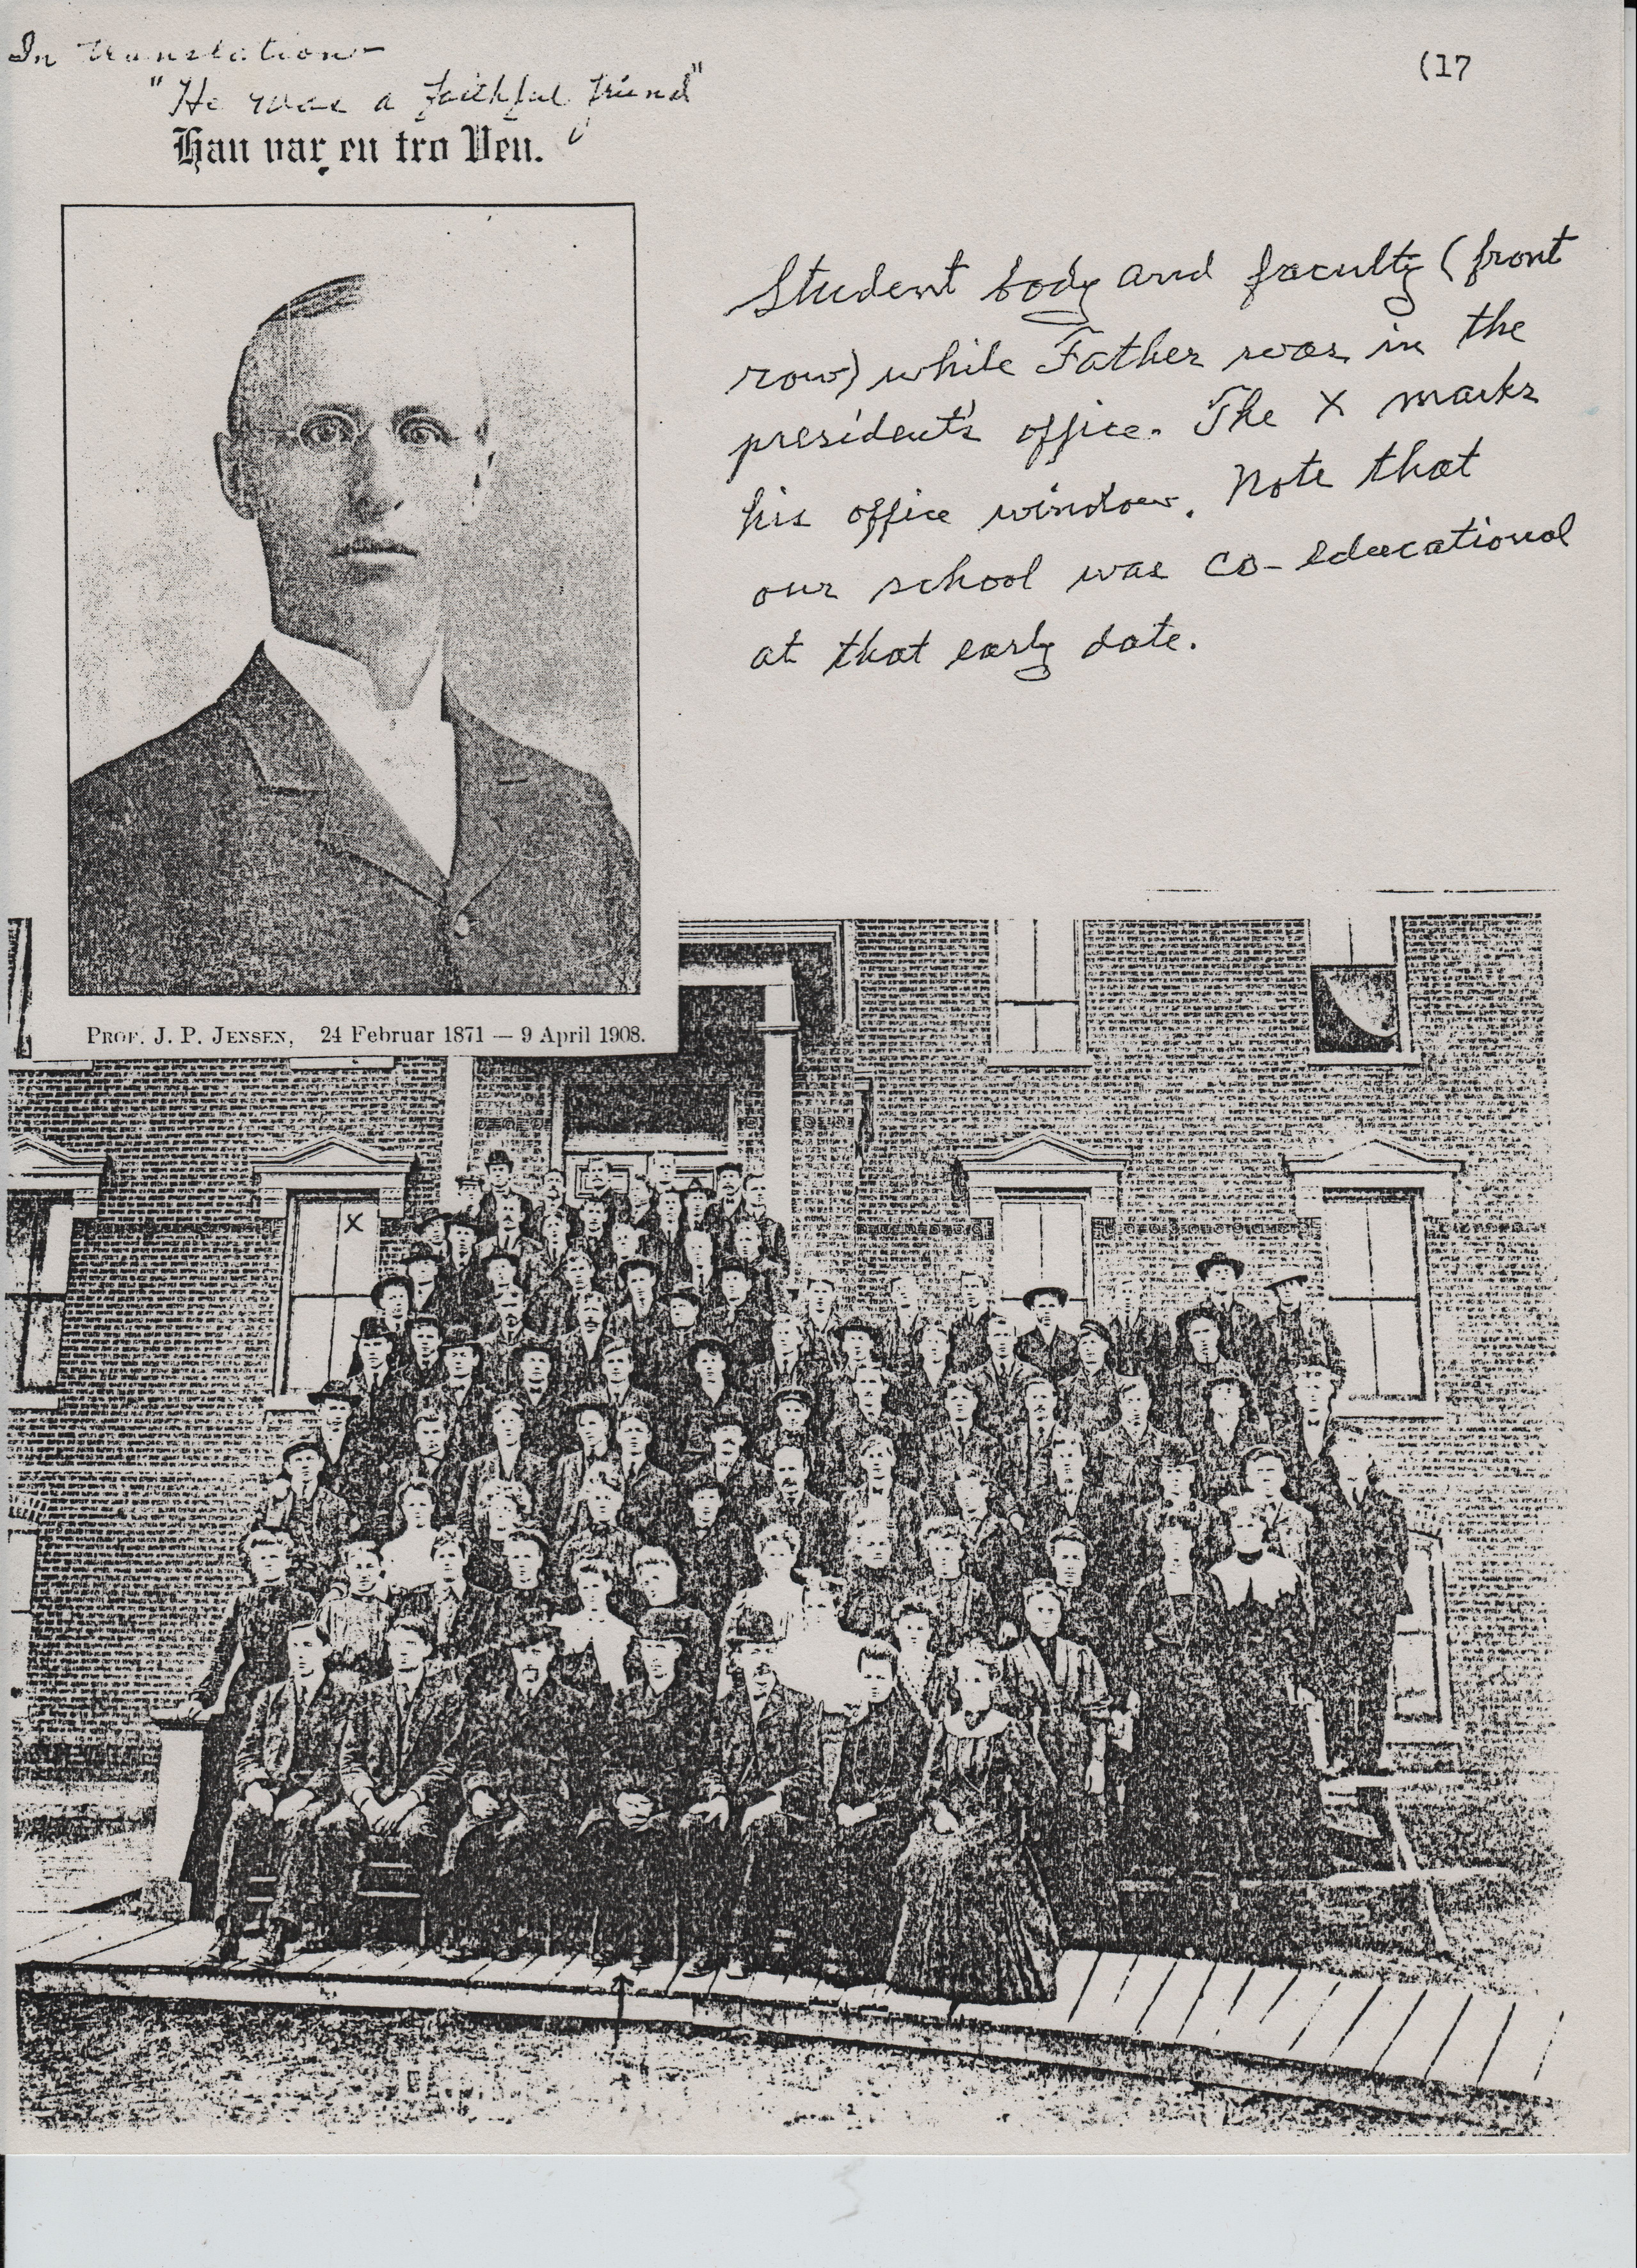 (17
In translation—
"He was a faithful friend"
Han var en tro Ven.
Student body and faculty (front
row) while Father was in the
president's office. The X marks
his office window. Note that
our school was co-educational
at that early date.
PROF. J. P. JENSEN, 24 Februar 1871 — 9 April 1908.
X